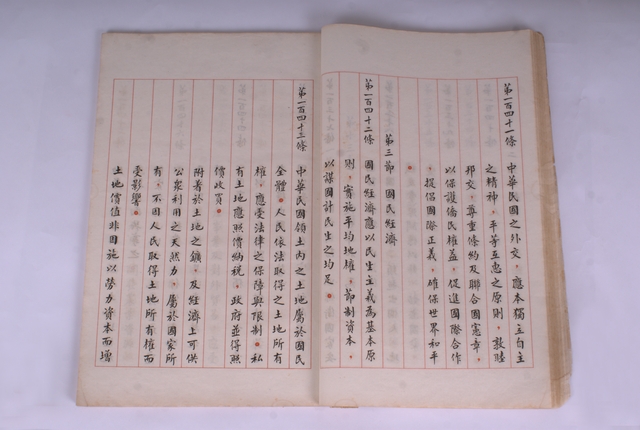 第一百四十一條　中華民國之外交，應本獨立自主
之精神，平等互惠之原則，敦睦
邦交，尊重條約及聯合國憲章，
以保護僑民權益，促進國際合作
，提倡國際正義，確保世界和平
。
第三節　國民經濟
第一百四十二條　國民經濟應以民生主義為基本原
則，實施平均地權，節制資本，
以謀國計民生之均足。
第一百四十三條　中華民國領土內之土地屬於國民
全體。人民依法取得之土地所有
權，應受法律之保障與限制。私
有土地應照價納稅，政府並得照
價收買。
附着於土地之鑛，及經濟上可供
公眾利用之天然力，屬於國家所
有，不因人民取得土地所有權而
受影響。
土地價值非因施以勞力資本而增